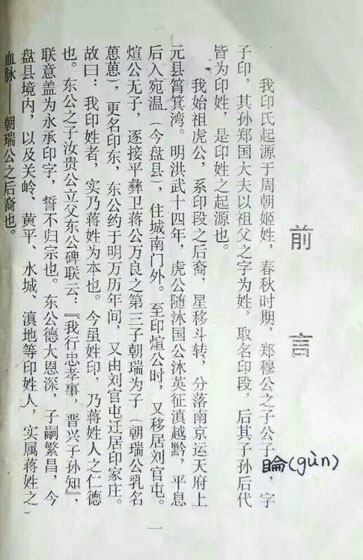 前言
我印氏起源于周朝姬姓,春秋时期,郑穆公之子公子睔(gùn),字
子印,其孙郑国大夫以祖父之字为姓,取名印段,后其子孙后代
皆为印姓,是印姓之起源也。
我始祖虎公,系印段之后裔,星移斗转,分落南京运天府上
元县筲箕湾。明洪武十四年,虎公随沐国公沐英征滇越黔,平息
后入宛温(今盘县),住城南门外。至印煊公时,又移居刘官屯。
煊公无子,逐接平彝卫蒋公万良之第三子朝瑞为子(朝瑞公乳名
),更名印东,东公约于明万历年间,又由刘官屯迁居印家庄。
故曰:我印姓者,实乃蒋姓为本也。今虽姓印,乃蒋姓人之仁德
也。东公之子汝贵公立父东公碑联云:“我行忠孝事,晋兴子孙知”,
联意盖为永承印字,誓不归宗也。东公德大恩深,子嗣繁昌,今
盘县境内,以及关岭、黄平、水城、滇地等印姓人,实属蒋姓之
血脉——朝瑞公之后裔也。
一